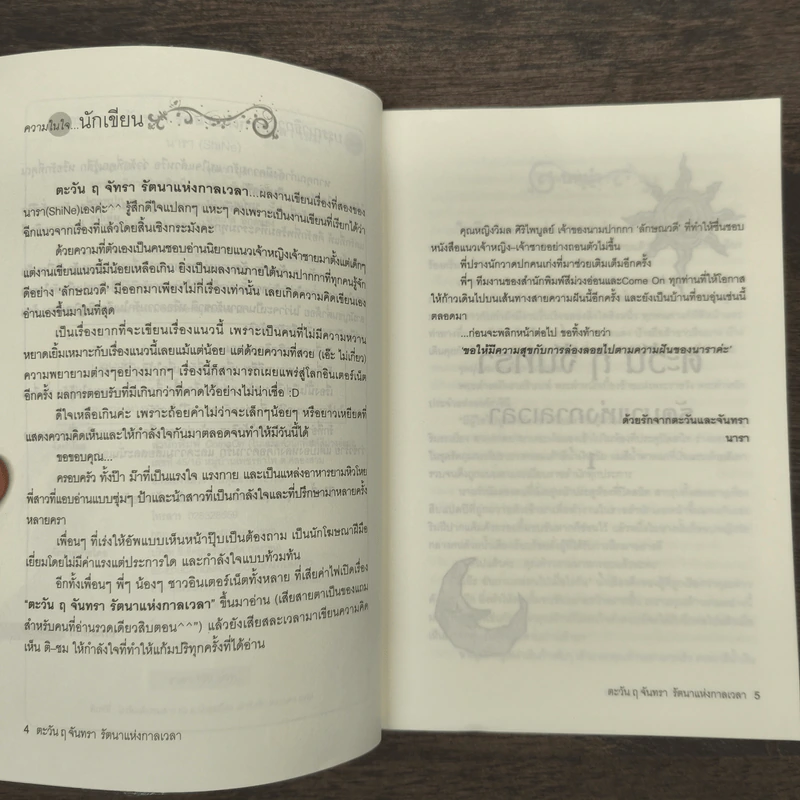 ความในใจ...นักเขียน
ตะวัน ฤ จันทรา รัตนาแห่งกาลเวลา...ผลงานเขียนเรื่องที่สองของ
นารา(ShiNe)เองค่ะ^^ รู้สึกดีใจแปลกๆ แหะๆ คงเพราะเป็นงานเขียนที่เรียกได้ว่า
ฉีกแนวจากเรื่องที่แล้วโดยสิ้นเชิงกระมังคะ
ด้วยความที่ตัวเองเป็นคนชอบอ่านนิยายแนวเจ้าหญิงเจ้าชายมาตั้งแต่เด็กๆ
แต่งานเขียนแนวนี้มีน้อยเหลือเกิน ยิ่งเป็นผลงานภายใต้นามปากกาที่ทุกคนรู้จัก
ดีอย่าง 'ลักษณวดี' มีออกมาเพียงไม่กี่เรื่องเท่านั้น เลยเกิดความคิดเขียนเอง
อ่านเองขึ้นมาในที่สุด
เป็นเรื่องยากที่จะเขียนเรื่องแนวนี้ เพราะเป็นคนที่ไม่มีความหวาน
หยาดเยิ้มเหมาะกับเรื่องแนวนี้เลยแม้แต่น้อย แต่ด้วยความที่สวย (เอ๊ะ ไม่เกี่ยว)
ความพยายามต่างๆอย่างมากๆ เรื่องนี้ก็สามารถเผยแพร่สู่โลกอินเตอร์เน็ต
อีกครั้ง ผลการตอบรับที่มีเกินกว่าที่คาดไว้อย่างไม่น่าเชื่อ :D
ดีใจเหลือเกินค่ะ เพราะถ้อยคำไม่ว่าจะเล็กๆน้อยๆ หรือยาวเหยียดที่
แสดงความคิดเห็นและให้กำลังใจกันมาตลอดจนทำให้มีวันนี้ได้
ขอขอบคุณ...
ครอบครัว ทั้งป๊า ม๊าที่เป็นแรงใจ แรงกาย และเป็นแหล่งอาหารยามหิวโหย
พี่สาวที่แอบอ่านแบบซุ่มๆ ป้าและน้าสาวที่เป็นกำลังใจและที่ปรึกษามาหลายครั้ง
หลายครา
เพื่อนๆ ที่เร่งให้อัพแบบเห็นหน้าปุ๊บเป็นต้องถาม เป็นนักโฆษณาฝีมือ
เยี่ยมโดยไม่มีค่าแรงแต่ประการใด และกำลังใจแบบท้วมท้น
อีกทั้งเพื่อนๆ พี่ๆ น้องๆ ชาวอินเตอร์เน็ตทั้งหลาย ที่เสียค่าไฟเปิดเรื่อง
"ตะวัน ฤ จันทรา รัตนาแห่งกาลเวลา" ขึ้นมาอ่าน (เสียสายตาเป็นของแถม
สำหรับคนที่อ่านรวดเดียวสิบตอน^^") แล้วยังเสียสละเวลามาเขียนความคิด
เห็น ติ-ชม ให้กำลังใจที่ทำให้แก้มปริทุกครั้งที่ได้อ่าน
4 ตะวัน ฤ จันทรา รัตนาแห่งกาลเวลา
คุณหญิงวิมล ศิริไพบูลย์ เจ้าของนามปากกา 'ลักษณวดี' ที่ทำให้ชื่นชอบ
หนังสือแนวเจ้าหญิง-เจ้าชายอย่างถอนตัวไม่ขึ้น
พี่ปรางนักวาดปกคนเก่งที่มาช่วยเติมเต็มอีกครั้ง
พี่ๆ ทีมงานของสำนักพิมพ์สีม่วงอ่อนและCome On ทุกท่านที่ให้โอกาส
ให้ก้าวเดินไปบนเส้นทางสายความฝันนี้อีกครั้ง และยังเป็นบ้านที่อบอุ่นเช่นนี้
ตลอดมา
...ก่อนจะพลิกหน้าต่อไป ขอทิ้งท้ายว่า
'ขอให้มีความสุขกับการล่องลอยไปตามความฝันของนาราค่ะ'
ด้วยรักจากตะวันและจันทรา
นารา
ตะวัน ฤ จันทรา รัตนาแห่งกาลเวลา 5